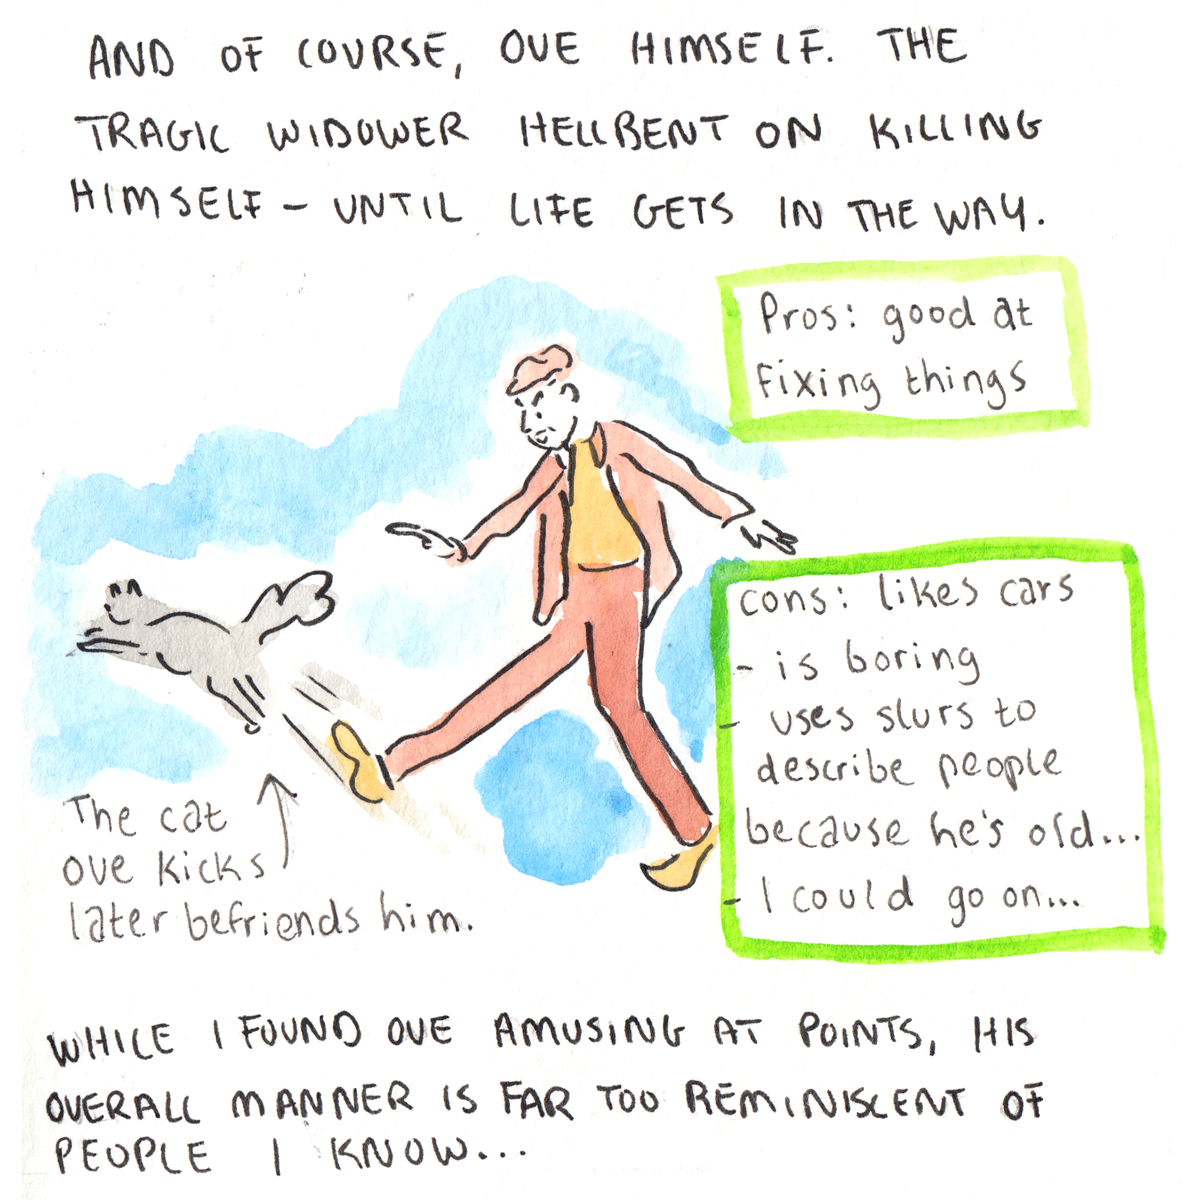 AND OF COURSE, OVE HIMSELF. THE
TRAGIC WIDOWER HELLBENT ON KILLING
HIMSELF – UNTIL LIFE GETS IN THE WAY.
Pros: good at
fixing things
cons: likes cars
- is boring
- uses slurs to
describe people
because he's old...
- I could go on...
The cat
ove kicks
later befriends him.
WHILE I FOUND OVE AMUSING AT POINTS, HIS
OVERALL MANNER IS FAR TOO REMINISCENT OF
PEOPLE I KNOW...